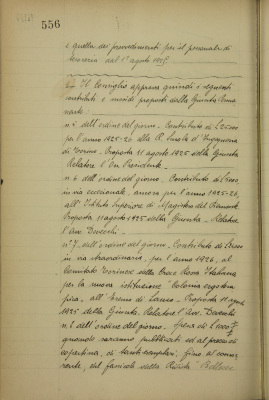 556
e quella dei provvedimenti per il personale di
tesoreria dal 1° agosto 1925.
Il Consiglio approva quindi i seguenti
contributi e sussidi proposti dalla Giunta
n. 5 dell'ordine del giorno - Contributo di L. 25000
per l'anno 1925-26 alla R. Scuola d'Ingegneria
di Torino - Proposta 11 agosto 1925 della Giunta
Relatore l'On. Presidente.
n. 6 dell'ordine del giorno - Contributo di L.
in via eccezionale, ancora per l'anno 1925-26,
all'Istituto Superiore di Magistero del Piemonte
Proposta 11 agosto 1925 della Giunta - Relatore
l'Avv.
n. 7 dell'ordine del giorno - Contributo di L.
in via straordinaria, per l'anno 1926, al
Comitato Torinese della Croce Rossa Italiana
per la nuova istituzione Colonia
all' di - Proposta 11 agosto
1925 della Giunta - Relatore l'Avv.
n. 8 dell'ordine del giorno - Spesa di L. 1000
quando saranno pubblicati ed al prezzo di
copertina, di esemplari, fino al
del fascicolo della Rivista